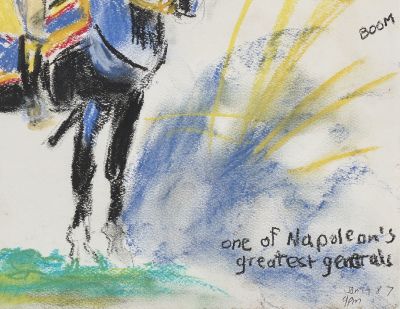 BOOM
one of Napolean's
greatest generals
9AM